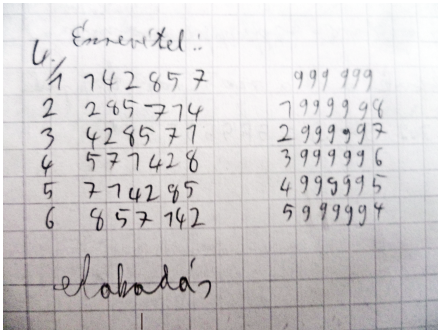 4./ Észrevétel:
1 142857 999 999
2 285714 1999998
3 428571 2999997
4 571428 3999996
5 714285 4999995
6 857142 5999994
elakadás